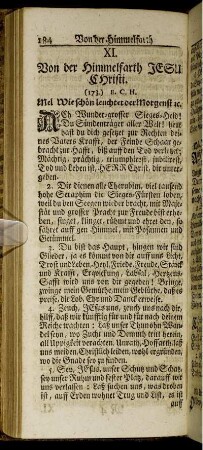 184 Von der Himmelfarth
XI.
Von der Himmelfarth JESU
CHristi.
(173.) E. C. H.
Mel. Wie schön leuchtet der Morgenst ꝛc.
ACh Wunder-grosser Sieges-Held!
Du Sündenträger aller Welt! heut
hast du dich gesetzet zur Rechten dei-
nes Vaters Krafft, der Feinde Schaar ge-
bracht zur Hafft, biß auff den Tod verletzet;
Mächtig, prächtig, triumphierst, jubilierst,
Tod und Leben, ist, HERR Christ, dir unter-
geben.
2. Dir dienen alle Cherubim, viel tausend
hohe Seraphim die Sieges-Fürsten loben,
weil du den Seegen wieder bracht, mit Maje-
stät und grosser Pracht zur Freude bist erho-
ben, singet, klinget, rühmt und ehret den, so
fähret auff gen Himmel, mit Posaunen und
Getümmel.
3. Du bist das Haupt, hingen wir sind
Glieder, ja es kömmt von dir auff uns Licht,
Trost und Leben, Heyl, Friede, Freude, Stärck
und Krafft, Erquickung, Labsal, Hertzens-
Safft wird uns von dir gegeben; Bringe,
zwinge mein Gemüthe, mein Geblüthe, daß es
preise, dir Lob, Ehr und Danck erweise.
4. Zeuch, JEsu, uns, zeuch uns nach dir,
hilff, daß wir künfftig für und für nach deinem
Reiche trachten: laß unser Thun und Wan-
del seyn, wo Zucht und Demuth tritt herein,
all Uppigkeit verachten, Unart, Hoffart, laß
uns meiden, Christlich leiden, wohl ergründen,
wo die Gnade sey zu finden.
5. Sey, JEsu, unser Schutz und Schatz,
sey unser Ruhm und fester Platz, darauff wir
uns verlassen: Laß suchen uns, was droben
ist, auff Erden wohnet Trug und List, es ist
auff